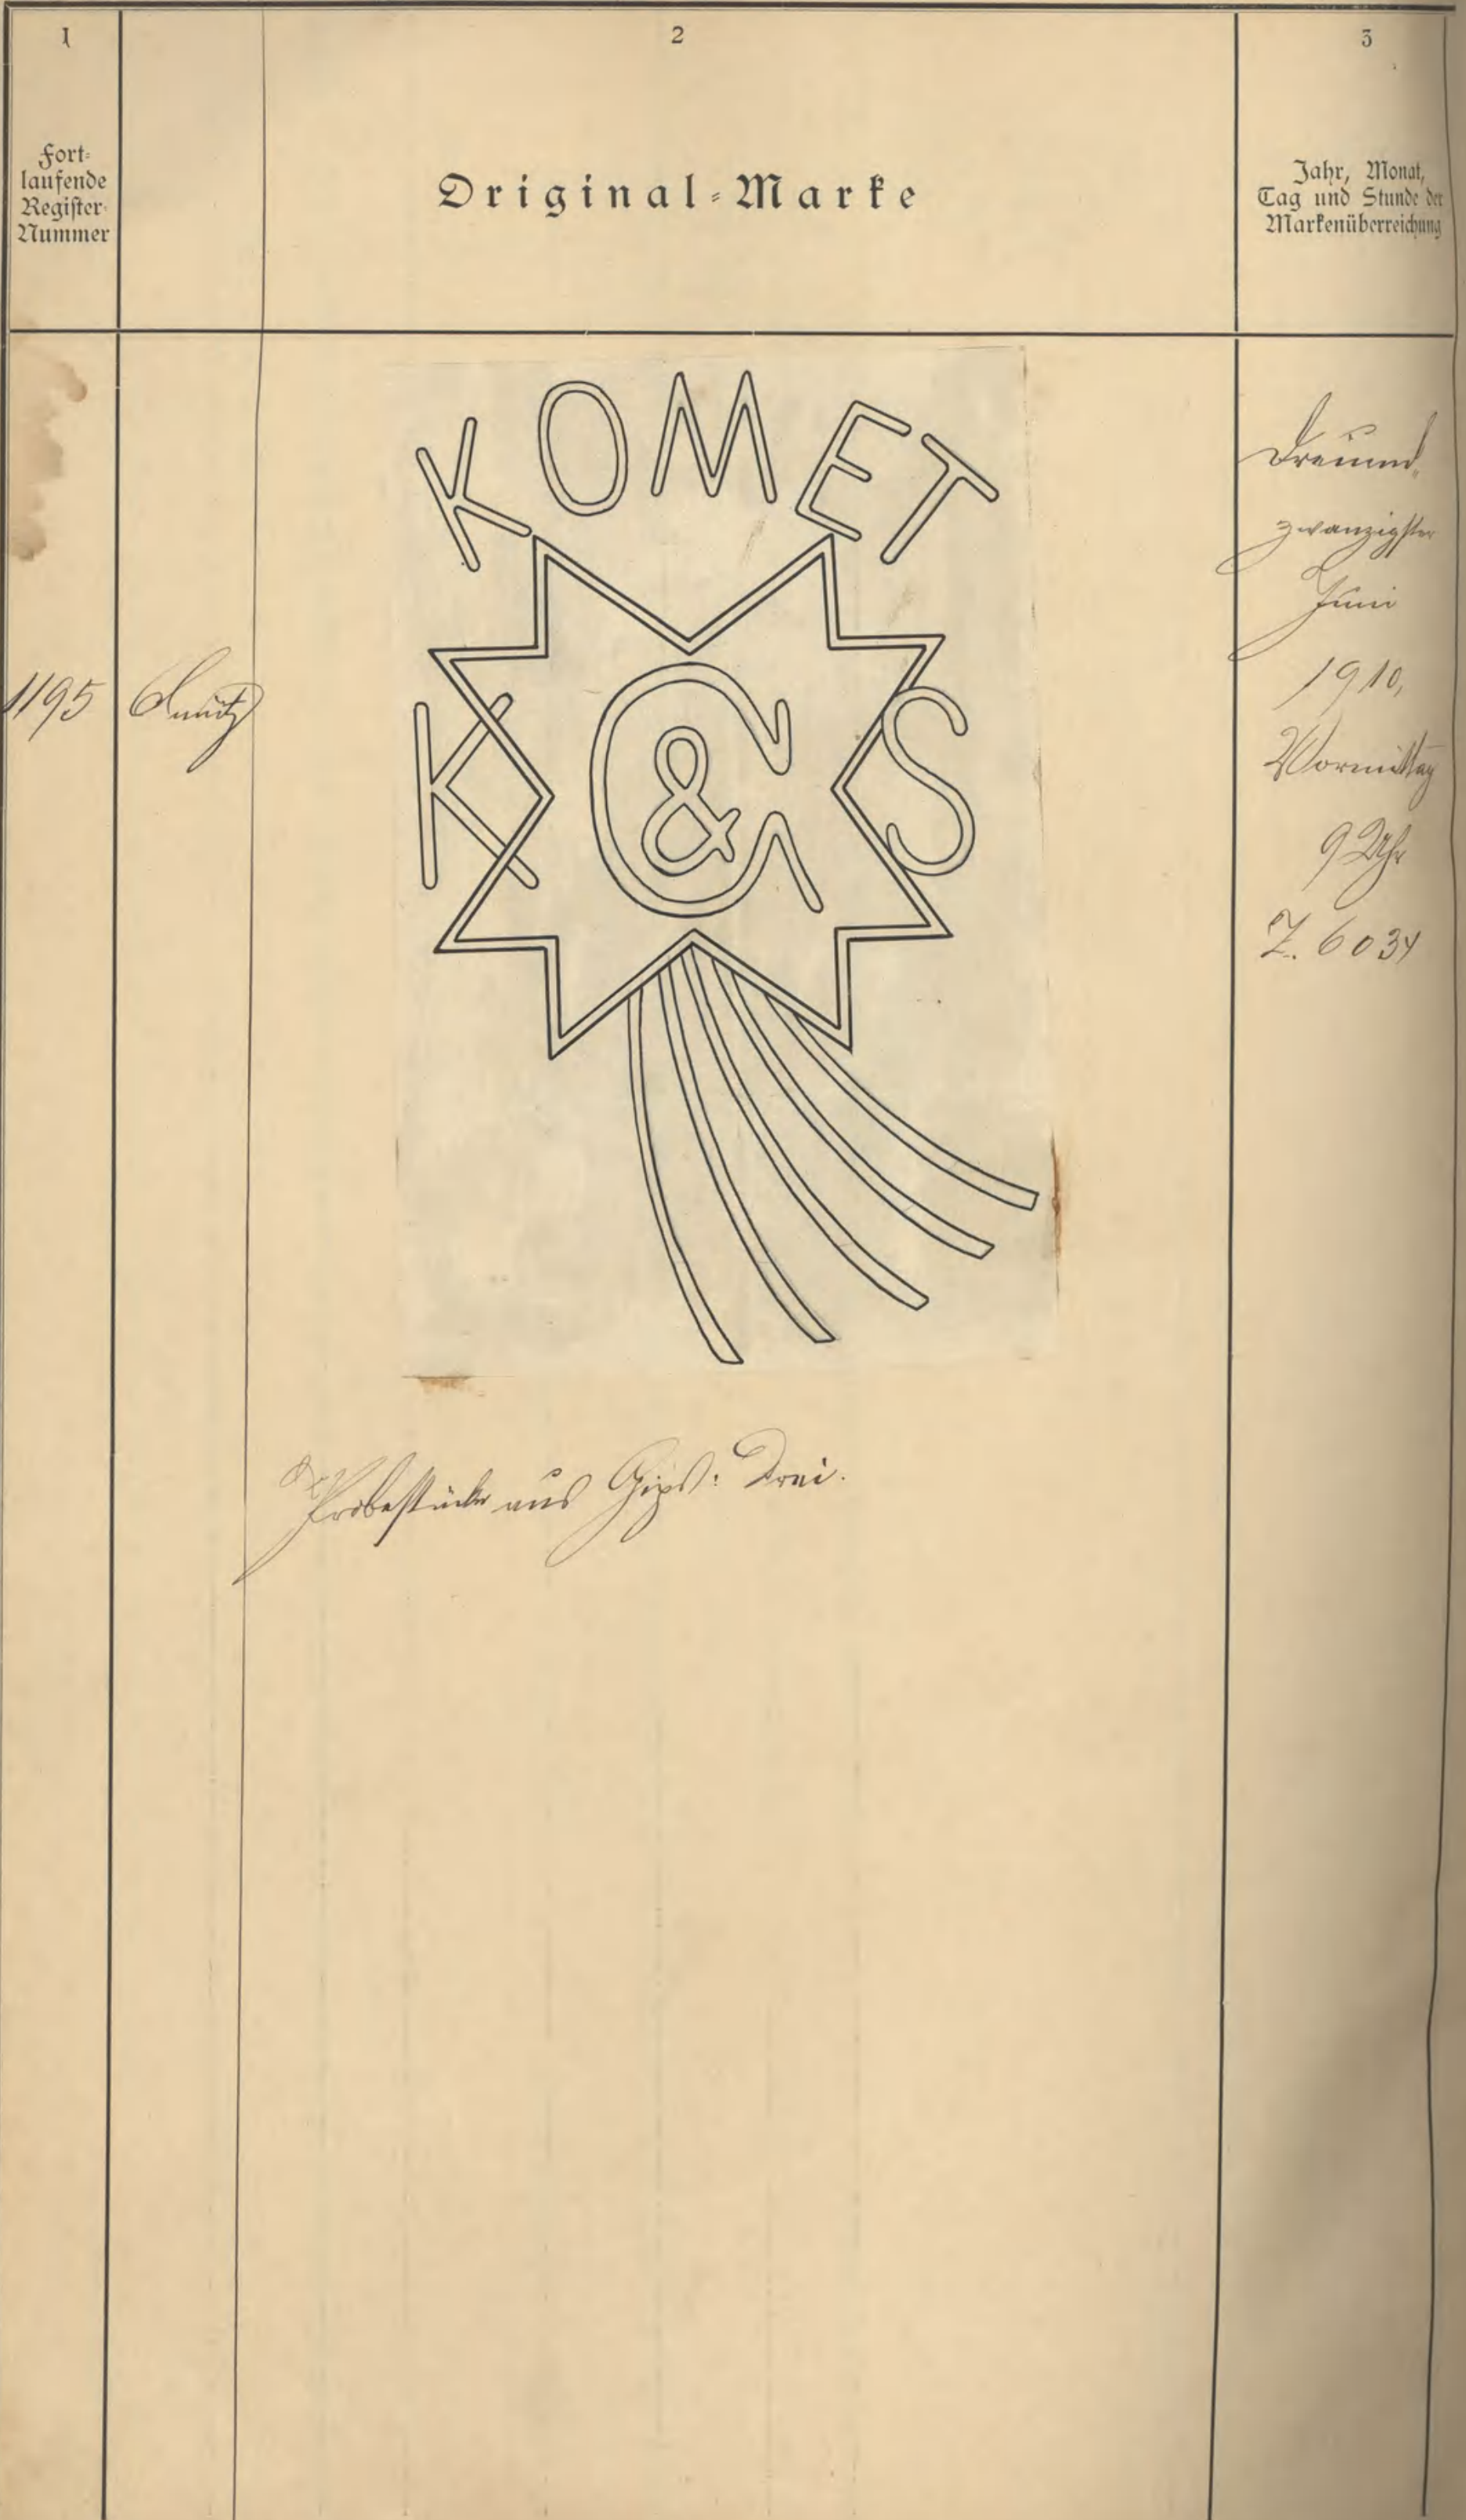 1
2
3
Fort-
laufende
Register-
Nummer
Original-Marke
Jahr, Monat,
Tag und Stunde der
Markenüberreichung
KOMET
K G & S
1195
Dreiund-
zwanzigster
Juni
1910,
Vormittag
9 Uhr
Z. 6034
Probestücke aus Gips: Drei.